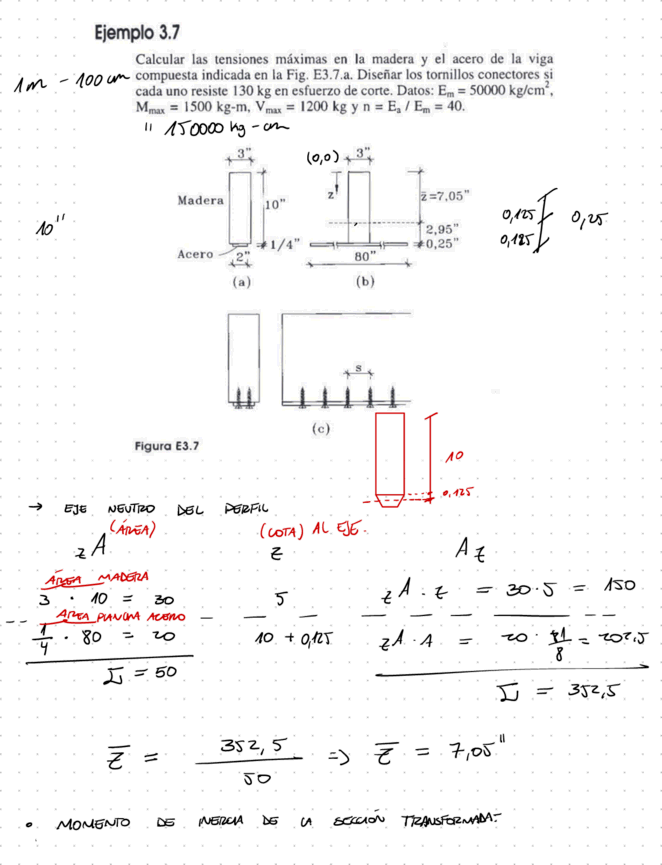 Ejemplo 3.7
Calcular las tensiones máximas en la madera y el acero de la viga
1m - 100 cm compuesta indicada en la Fig. E3.7.a. Diseñar los tornillos conectores si
cada uno resiste 130 kg en esfuerzo de corte. Datos: Em = 50000 kg/cm²,
Mmax = 1500 kg-m, Vmax = 1200 kg y n = Ea / Em = 40.
" 150000 kg-cm
3" (0,0) 3"
Madera 10" z z̄=7,05"
10" 0,125 0,25
2,95"
0,125
Acero 1/4" 0,25"
2" 80"
(a) (b)
s
(c)
Figura E3.7
10
0,125
→ EJE NEUTRO DEL PERFIL
(ÁREA) (COTA) AL EJE.
zA z Az
ÁREA MADERA
3 · 10 = 30 5 zA · z = 30 · 5 = 150
AREA PLANCHA ACERO
1/4 · 80 = 20 10 + 0,125 zA · A = 20 · 81/8 = 202,5
Σ = 50 Σ = 352,5
z̄ = 352,5 / 50 => z̄ = 7,05"
• MOMENTO DE INERCIA DE LA SECCIÓN TRANSFORMADA: